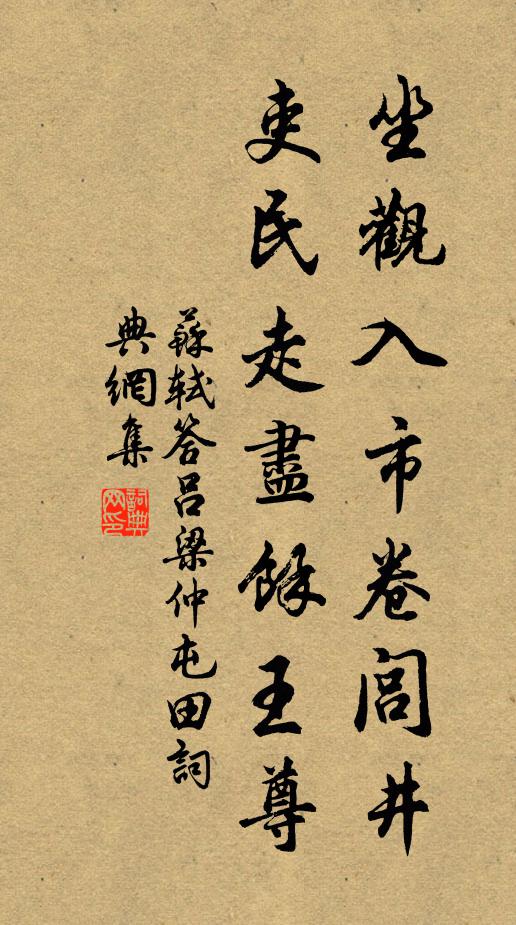 坐觀入市卷閭井
吏民走盡餘王尊
蘇軾答呂梁仲屯田詞
典網集
詞典網印